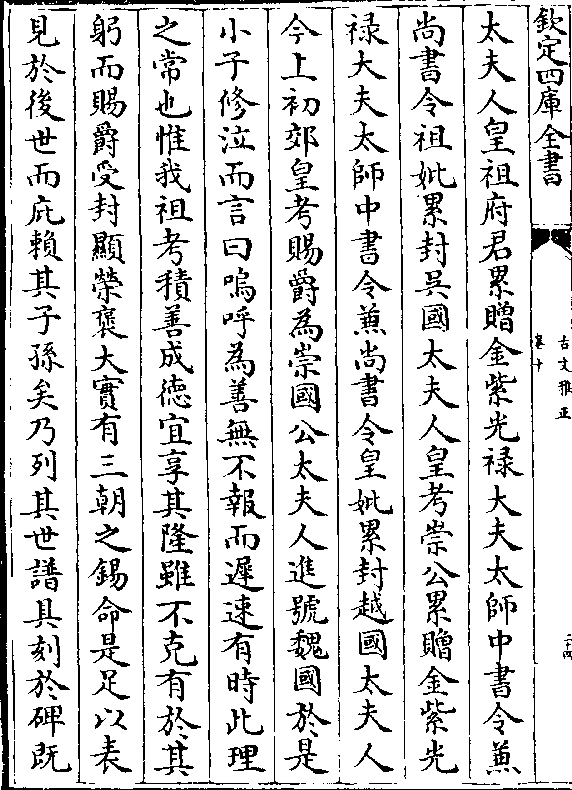 欽定四庫全書
古文雅正
卷十
二十四
太夫人皇祖府君累贈金紫光禄大夫太師中書令兼
尚書令祖妣累封吳國太夫人皇考崇公累贈金紫光
禄大夫太師中書令兼尚書令皇妣累封越國太夫人
今上初郊皇考賜爵為崇國公太夫人進號魏國於是
小子修泣而言曰嗚呼為善無不報而遲速有時此理
之常也惟我祖考積善成徳宜享其隆雖不克有於其
躬而賜爵受封顯榮褒大實有三朝之錫命是足以表
見於後世而庇賴其子孫矣乃列其世譜具刻於碑既